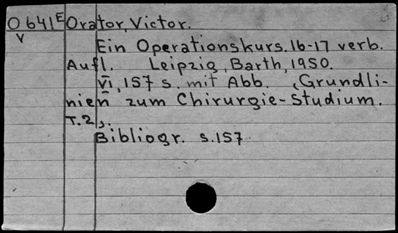 O641E Orator, Victor.
V
Ein Operationskurs. 16-17 verb.
Aufl. Leipzig, Barth, 1950.
VI, 157 s. mit Abb. (Grundli-
nien zum Chirurgie-Studium.
T.2).
Bibliogr. s.157